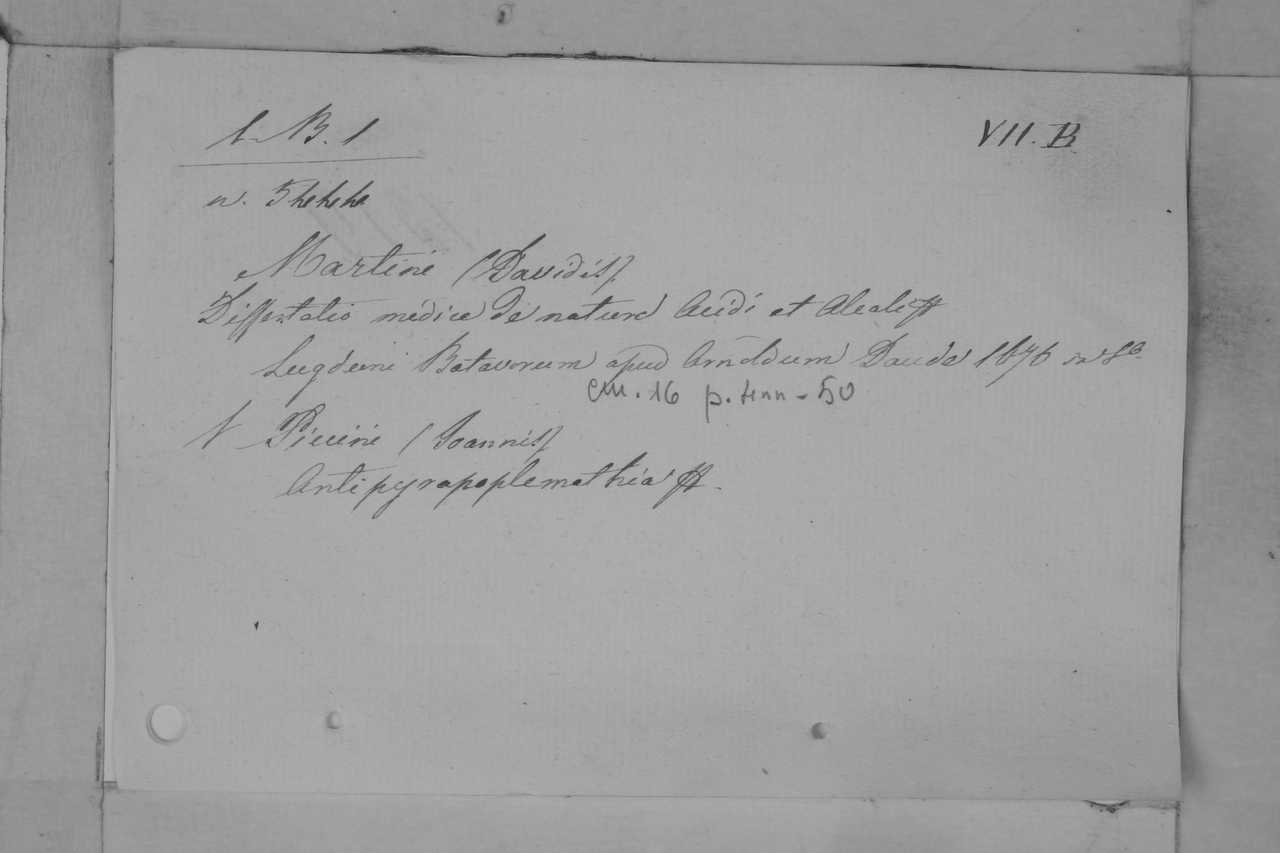 1. B. 1
VII. B
n. 5
Martini (Davidis)
Dissertatio medica de natura Acidi et Alcali ff
Lugduni Batavorum apud Arnoldum Doude 1676 in 8º
cm. 16 p. - 50
V Piccini (Joannis)
Antipyrapoplemathia ff.